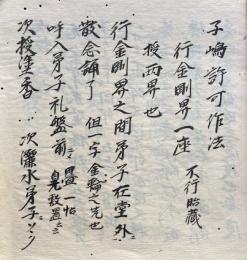 子嶋許可作法
行金剛界一座 不行胎藏
授両界也
行金剛界之間弟子在堂外ニ
散念誦了 但一字金輪之先也
呼入弟子礼盤前ニ 畳一帖
兼敷置之
次授塗香 次灑水弟子ニ